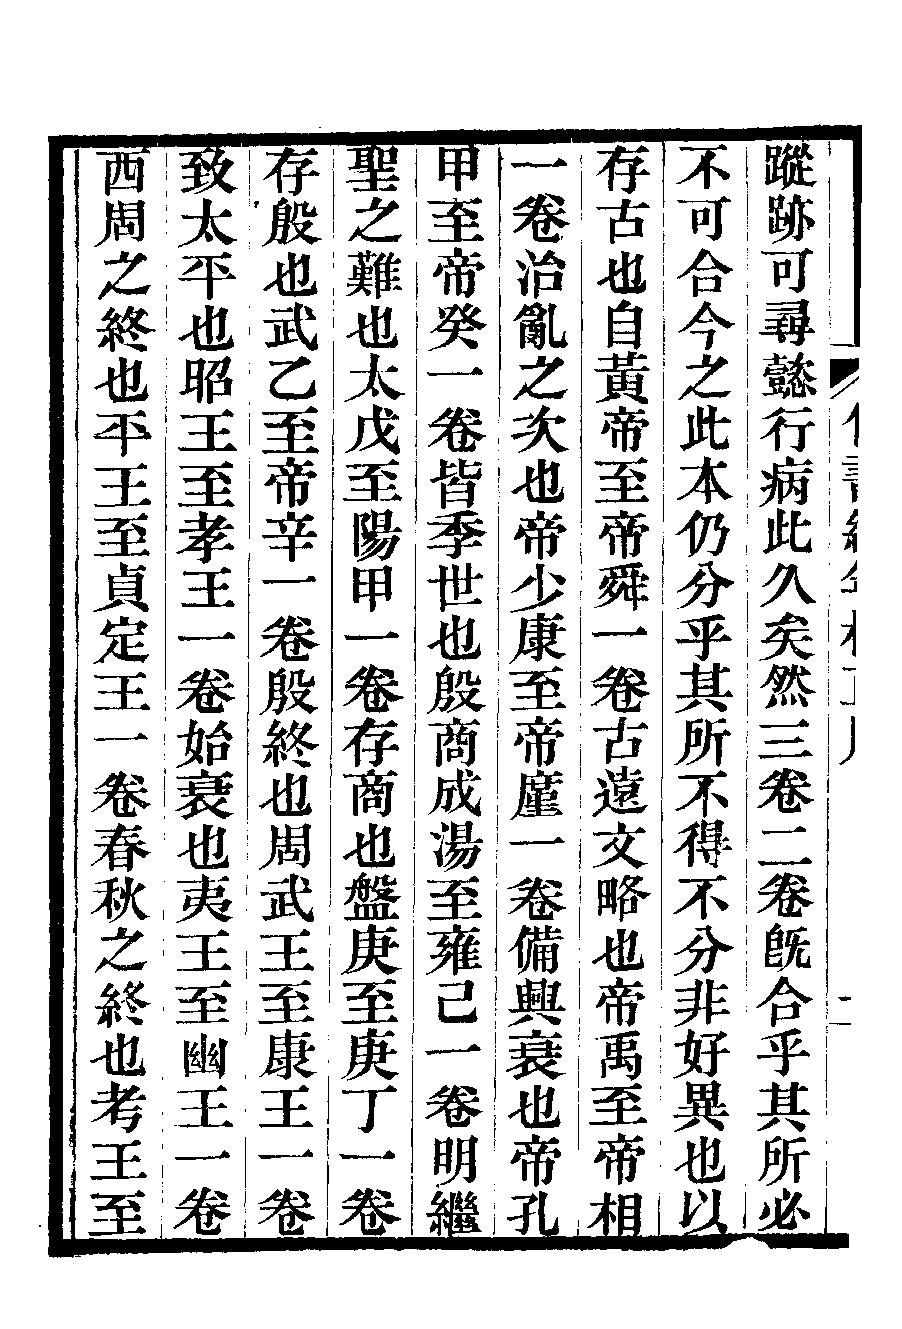 蹤跡可尋懿行病此久矣然三卷二卷旣合乎其所必
不可合今之此本仍分乎其所不得不分非好異也以
存古也自黃帝至帝舜一卷古遠文略也帝禹至帝相
一卷治亂之次也帝少康至帝廑一卷備興衰也帝孔
甲至帝癸一卷皆季世也殷商成湯至雍己一卷明繼
聖之難也太戊至陽甲一卷存商也盤庚至庚丁一卷
存殷也武乙至帝辛一卷殷終也周武王至康王一卷
致太平也昭王至孝王一卷始衰也夷王至幽王一卷
西周之終也平王至貞定王一卷春秋之終也考王至